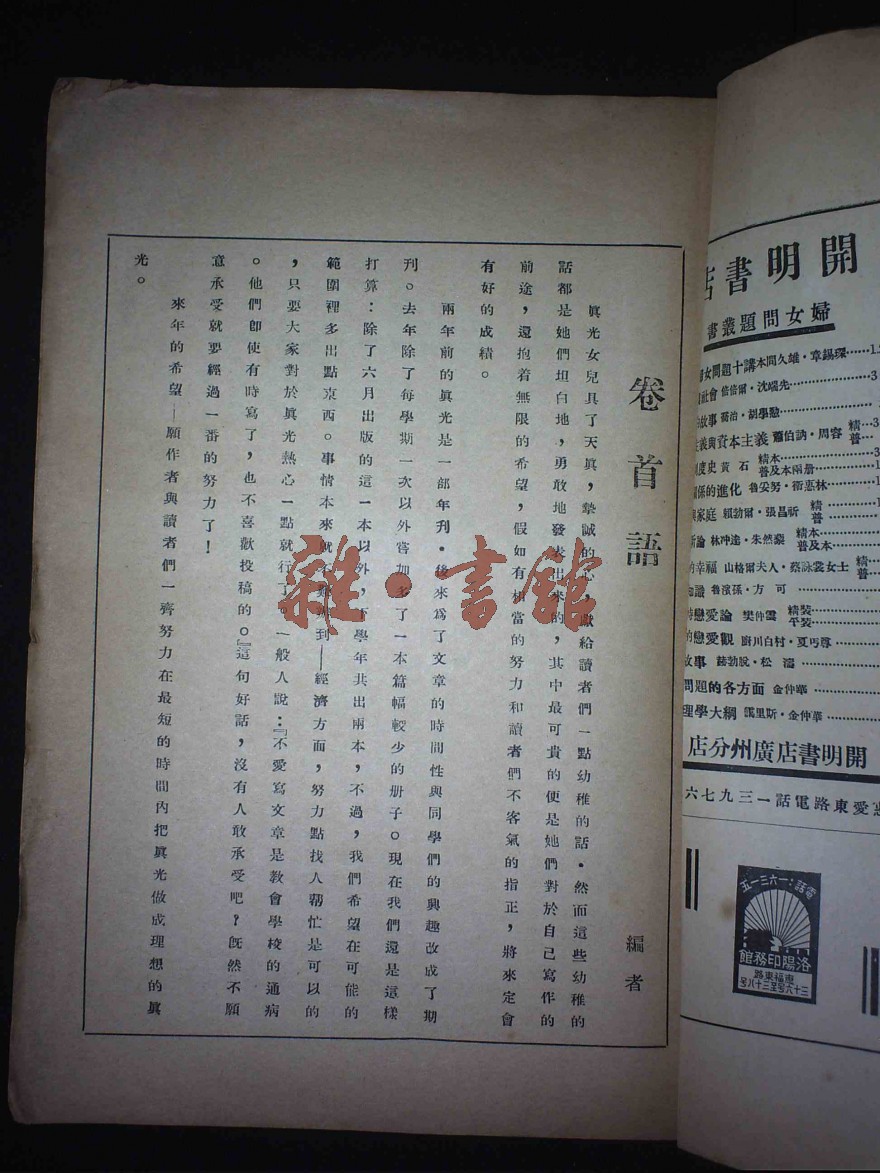 卷首語
編者
眞光女兒具了天眞，摯誠的心，獻給讀者們一點幼稚的話・然而這些幼稚的
話都是她們坦白地，勇敢地發表出來的，其中最可貴的便是她們對於自己寫作的
前途，還抱着無限的希望，假如有相當的努力和讀者們不客氣的指正，將來定會
有好的成績。
兩年前的眞光是一部年刊・後來爲了文章的時間性與同學們的興趣改成了期
刊。去年除了每學期一次以外嘗加多了一本篇幅較少的册子。現在我們還是這樣
打算：除了六月出版的這一本以外，下學年共出兩本，不過，我們希望在可能的
範圍裡多出點東西。事情本來就不難辦到——經濟方面，努力點找人帮忙是可以的
，只要大家對於眞光熱心一點就行了。一般人說：『不愛寫文章是教會學校的通病
。他們卽使有時寫了，也不喜歡投稿的。』這句好話，沒有人敢承受吧？旣然不願
意承受就要經過一番的努力了！
來年的希望——願作者與讀者們一齊努力在最短的時間內把眞光做成理想的眞
光。
雜・書館
開明書店
婦女問題叢書
女問題十講 本間久雄・章錫琛
社會 倍倍爾・沈端先
故事
義與資本主義 蕭伯訥・周容 精 普
度史 黃石 精本 普及本兩册
係的進化 魯妥努・衞惠林
家庭 賴勃爾・張昌祈 精 普
論 林冲逵・朱然藜 精本 普及本
的幸福 山格爾夫人・蔡詠裳女士 精 普
知識 魯濱孫・方可
戀愛論 樊仲雲 精裝 平裝
的戀愛觀 廚川白村・夏丏尊
故事
問題的各方面 金仲華
理學大綱 謁里斯・金仲華
開明書店廣州分店
惠愛東路電話一三九七六
電話：一六三一五
洛陽印務館
惠福東路
三十六号至三十八号